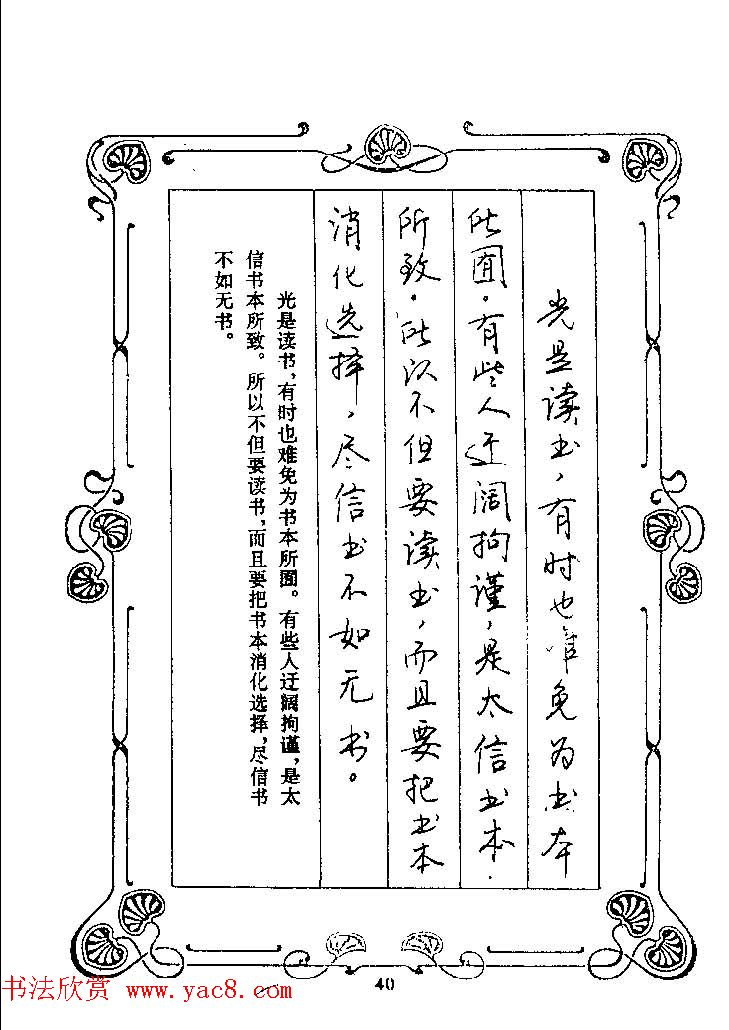 光是读书，有时也难免为书本
所囿。有些人迂阔拘谨，是太信书本.
所致。所以不但要读书，而且要把书本
消化选择，尽信书不如无书。
光是读书，有时也难免为书本所囿。有些人迂阔拘谨，是太
信书本所致。所以不但要读书，而且要把书本消化选择，尽信书
不如无书。
40
书法欣赏 www.yac8.com